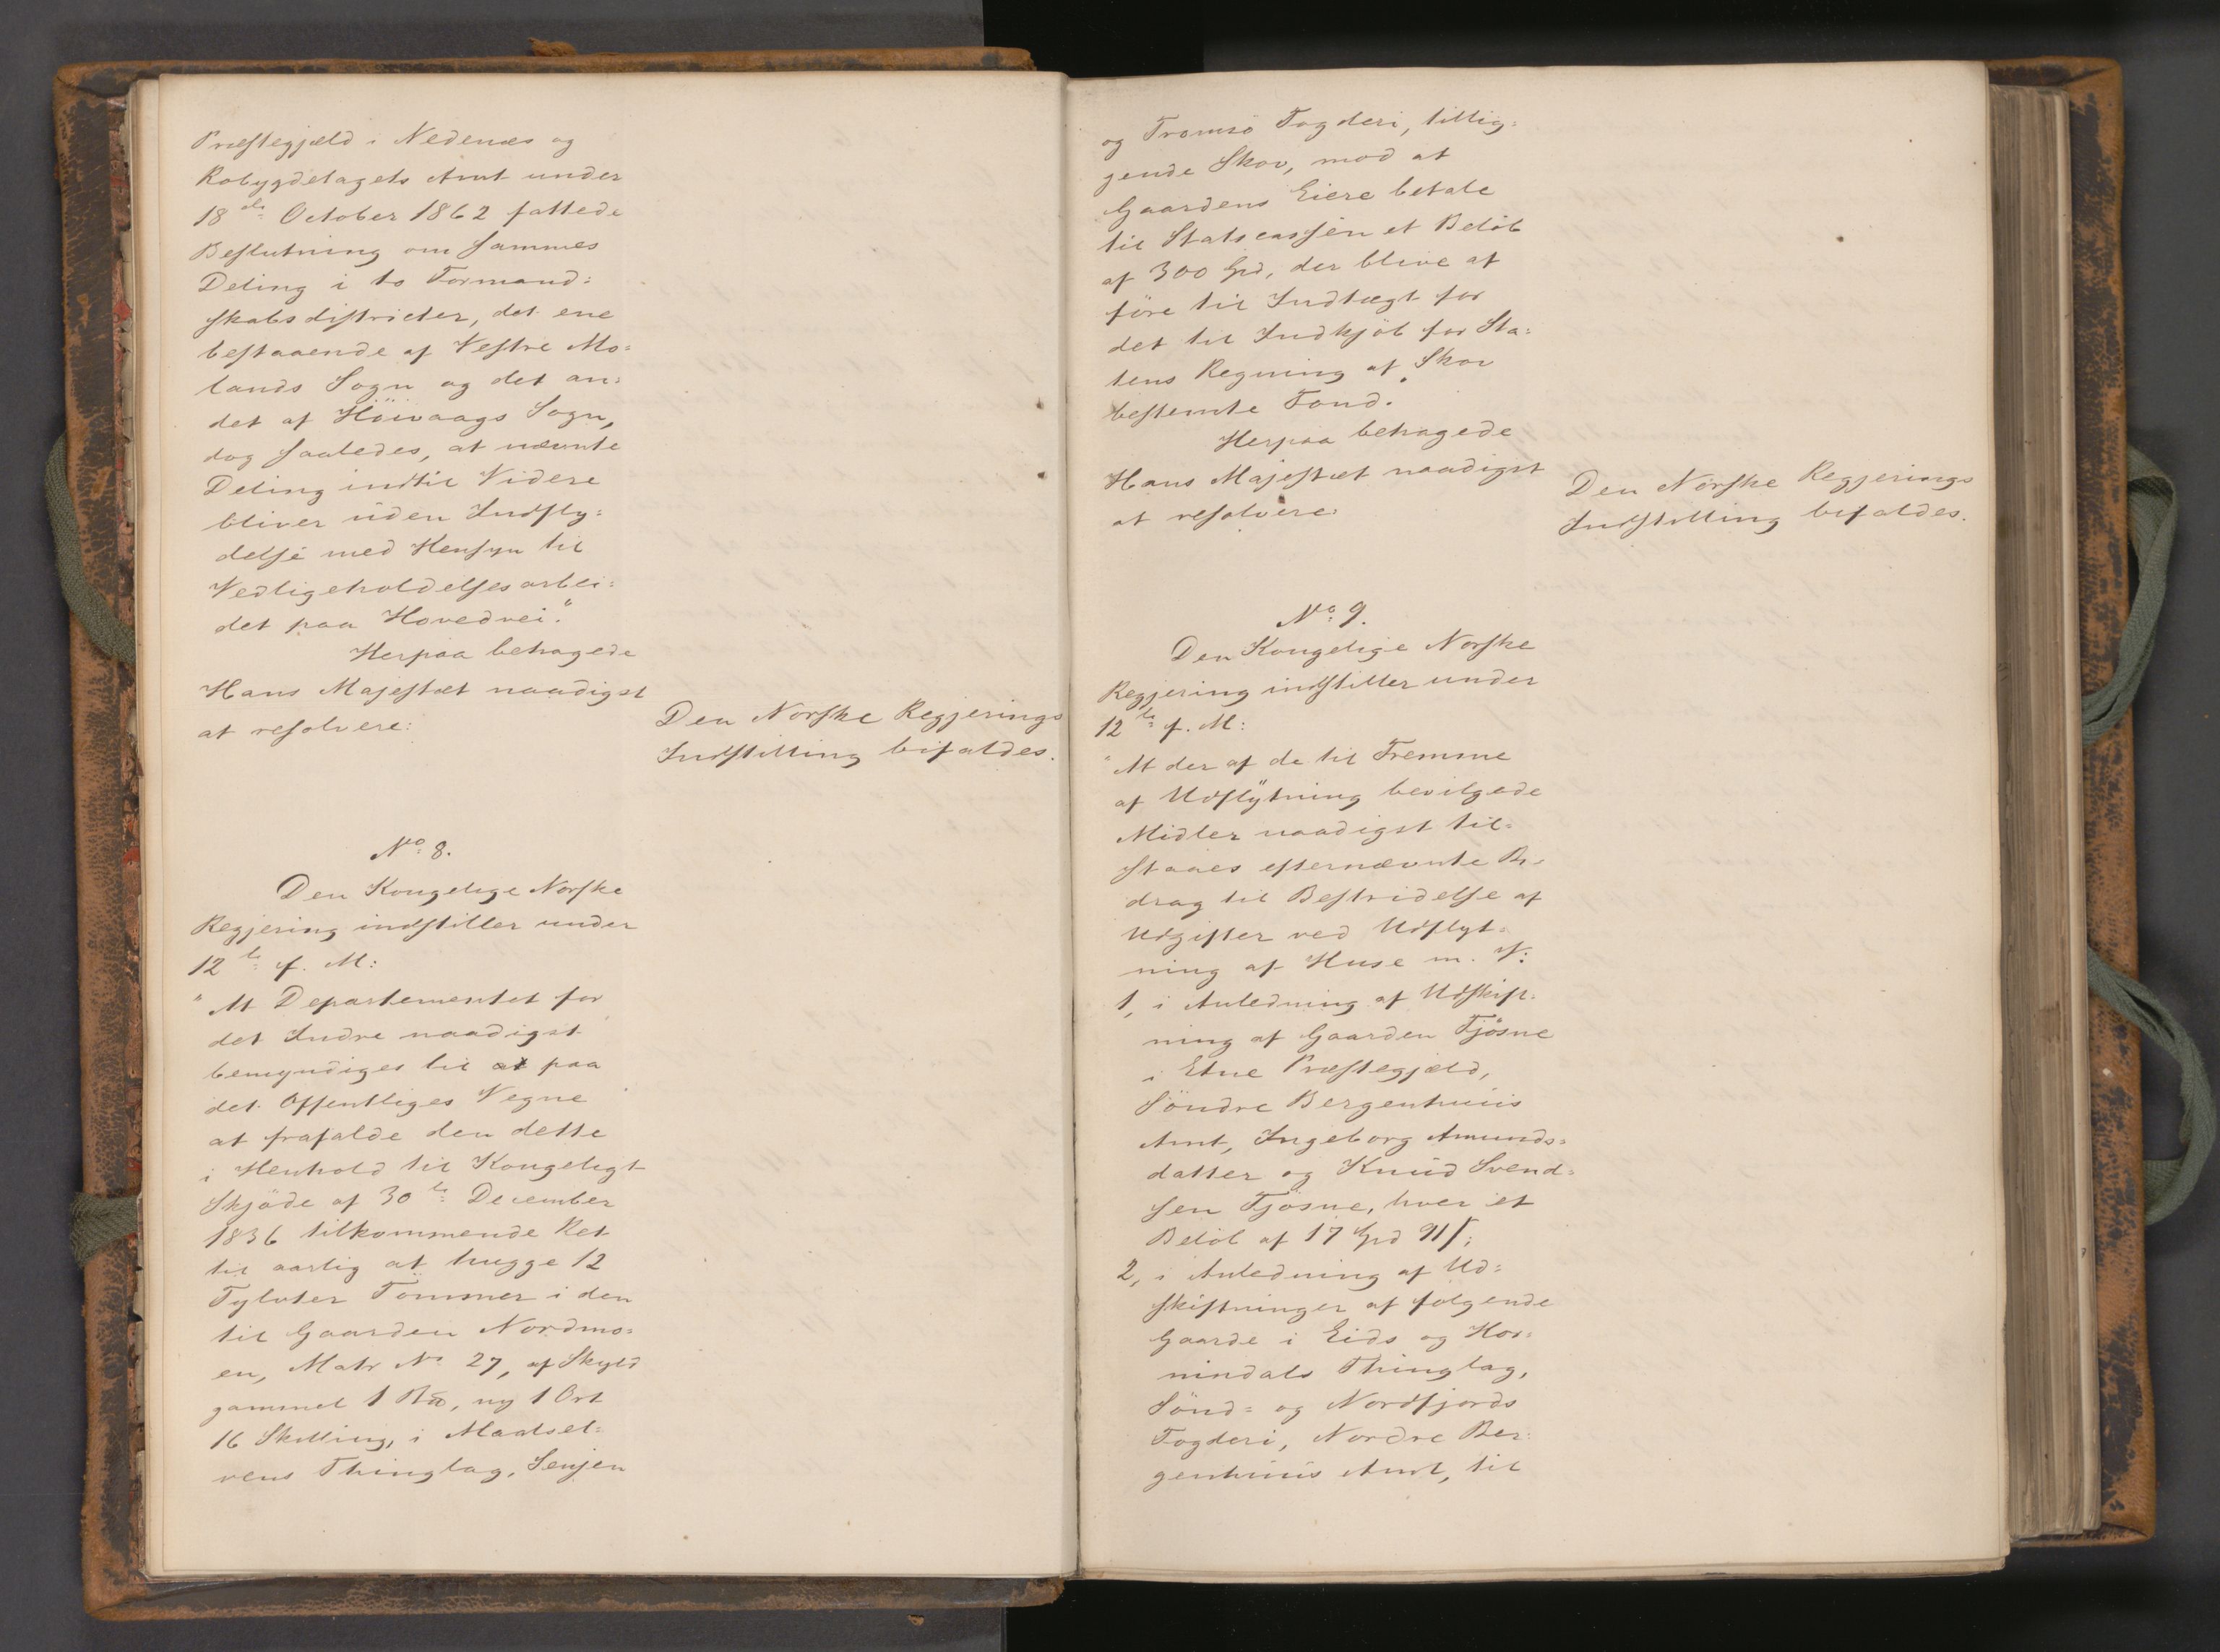 Præstegjæld i Nedenæs og
Robygdelagets Amt under
18de October 1862 fattede
Beslutning om sammes
Deling i to Formand=
skabsdistricter, det ene
bestaaende af Vestre Mo=
lands Sogn og det an=
det af Höivaags Sogn,
dog saaledes, at nævnte
Deling indtil Videre
bliver uden Indfly=
delse med Hensyn til
Vedligeholdelsesarbei=
det paa Hovedvei."
Herpaa behagede
Hans Majestæt naadigst
at resolvere:
Den Norske Regjerings
Indstilling bifaldes.
No 8.
Den Kongelige Norske
Regjering indstiller under
12te f. M:
"At Departementet for
det Indre naadigst
bemyndiges til at paa
det Offentliges Vegne
at frafalde den dette
i Henhold til Kongeligt
Skjöde af 30te December
1836 tilkommende Ret
til aarlig at hugge 12
Tylvter Tömmer i den
til Gaarden Nordmo=
en, Matr No 27, af Skyld
gammel 1 , ny 1 Ort
16 Skilling, i Maalsel=
vens Thinglag, Senjen
og Tromsö Fogderi, tillig=
gende Skov, mod at
Gaardens Eiere betale
til Statscassen et Belöb
af 300 Spd, der blive at
före til Indtægt for
det til Indkjöb for Sta=
tens Regning af Skov
bestemte Fond."
Herpaa behagede
Hans Majestæt naadigst
at resolvere:
Den Norske Regjerings
Indstilling bifaldes.
No 9.
Den Kongelige Norske
Regjering indstiller under
12te f. M:
"At der af de til Fremme
af Udflytning bevilgede
Midler naadigst til=
staaes efternævnte Bi=
drag til Bestridelse af
Udgifter ved Udflyt=
ning af Huse m. V:
1, i Anledning af Udskift=
ning af Gaarden Tjösne
i Etne Præstegjæld,
Söndre Bergenhuus
Amt, Ingeborg Amunds=
datter og Knud Svend=
sen Tjösne, hver et
Belöb af 17 Spd 91 ſ;
2, i Anledning af Ud=
skiftninger af følgende
Gaarde i Eids og Hor=
nindals Thinglag,
Sönd= og Nordfjords
Fogderi, Nordre Ber=
genhuus Amt, til